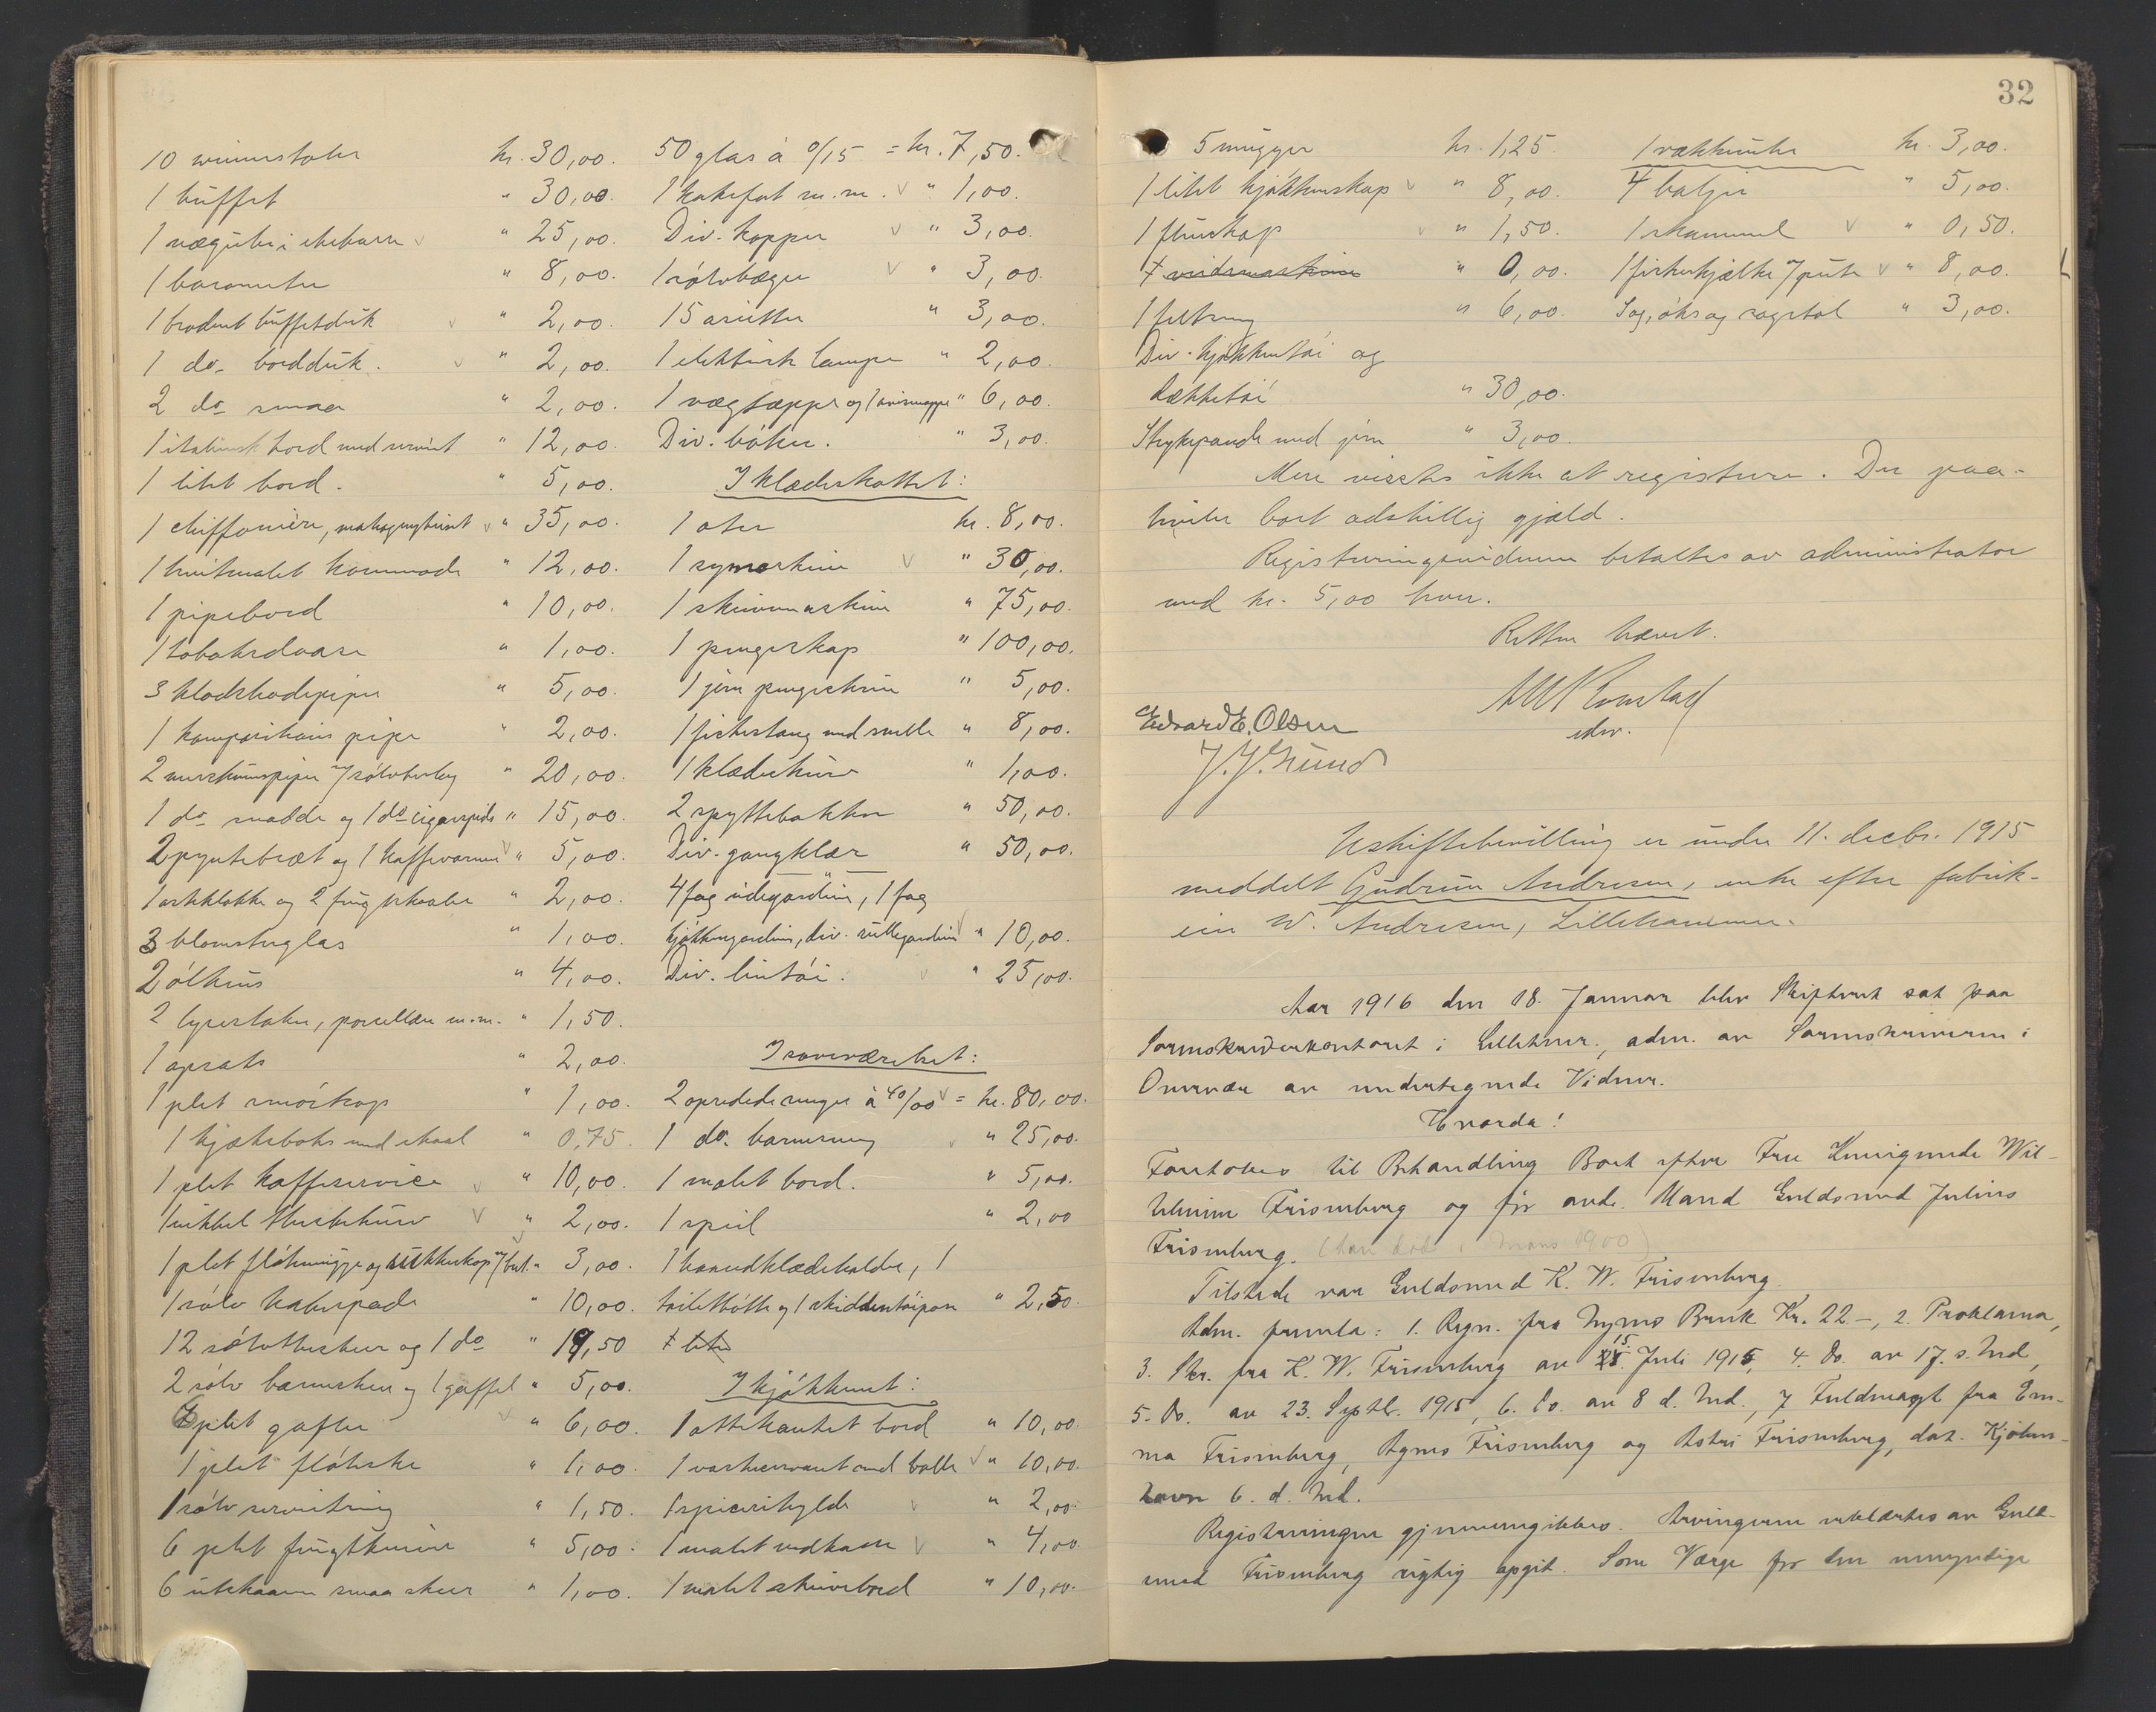 10 wienerstoler kr. 30,00.
1 buffet " 30,00.
1 vægur i ekekasse " 25,00.
1 barometer " 8,00.
1 brodert buffetduk " 2,00.
1 do. bordduk. " 2,00.
2 do smaa " 2,00.
1 italiensk bord med " 12,00.
1 litet bord. " 5,00.
1 chiffoniére, " 35,00.
1 hvitmalet kommode " 12,00.
1 pipebord " 10,00.
1 tobaksdaase " 1,00.
3 piper " 5,00.
1 kompositions pipe " 2,00.
2 merskumspiper m/ sølvbeslag " 20,00.
1 do snadde og 1 do cigarspids " 15,00.
2 pyntebræt og 1 kaffevarmer " 5,00.
1 ostklokke og 2 " 2,00.
3 blomsterglas " 1,00.
2 ølkrus " 4,00.
2 lysestaker, porcellæn m.m. " 1,50.
1 opsats " 2,00.
1 plet smørkop " 1,00.
1 kjæksboks med skaal " 0,75.
1 plet kaffeservice " 10,00.
1 nikkel " 2,00.
1 plet fløtemugge og sukkerkop m/ bret. " 3,00.
1 sølv kakespade " 10,00.
12 sølvtheskeer og 1 do " 19,50
2 sølv barneskeer og 1 gaffel " 5,00.
plet gafler " 6,00.
1 plet fløteske " 1,00.
1 sølv servietring " 1,50.
6 plet frugtkniver " 5,00.
6 smaa skeer " 1,00.
50 glas á 0/15 = kr. 7,50.
1 kakefat m.m. " 1,00.
Div. kopper " 3,00.
1 sølvbæger " 3,00.
15 asietter " 3,00.
1 elektrisk lampe " 2,00.
1 vægteppe og 1 avismappe " 6,00.
Div. bøker. " 3,00.
I klædeskottet:
1 kr. 8,00.
1 symaskine " 30,00.
1 skrivemaskine " 75,00.
1 pengeskap " 100,00.
1 jern pengeskrin " 5,00.
1 fiskestang med snelle " 8,00.
1 klædekurv " 1,00.
2 spyttebakker " 50,00.
Div. gangklær " 50,00.
4 fag uldgardiner, 1 fag
kjøkkengardin, div. rullegardin " 10,00.
Div. lintøi. " 25,00.
I soveværelset:
2 opredde senger á 40/00 = kr. 80,00.
1 do. barneseng " 25,00.
1 malet bord. " 5,00.
1 speil " 2,00
1 haandklædeholder, 1
toiletbøtte og 1 skiddentøipose " 2,50.
I kjøkkenet:
1 ottekantet bord " 10,00.
1 vaskeservant med balle " 10,00.
1 spicerihylde " 2,00.
1 malet vedkasse " 4,00.
1 malet skrivebord " 10,00.
32
5 mugger kr. 1,25.
1 litet kjøkkenskap " 8,00.
1 flueskap " 1,50.
1 vridemaskine " 0,00.
1 feltseng " 6,00.
Div. kjøkkentøi og
dækketøi " 30,00.
Strykepande med jern " 3,00.
1 vækkeruhr kr. 3,00.
4 baljer " 5,00.
1 skammel " 0,50.
1 fiskekjælke m/ pute " 8,00.
Sag, øks og sagstol " 3,00.
Mere vistes ikke at registrere. Der paa-
hviler boet adskillig gjæld.
Registreringsvidnerne betaltes av administrator
med kr. 5,00 hver.
Retten hævet.
edsv.
Edvard E. Olsen
J. J. Grund
Uskiftebevilling er under 11. decbr. 1915
meddelt Gudrun Andresen, enke efter fabrik-
eier W. Andresen, Lillehammer.
Aar 1916 den 18. Januar blev Skifteret sat paa
Sorenskriverkontoret i Lillehmr., adm. av Sorenskriveren i
Overvær av undertegnede Vidner.
Hvorda!
Foretokes til Behandling Boet efter Fru Kunigunde Wil-
helmine Frisenberg og før avde. Mand Guldsmed Julius
Frisenberg. (han døde i Mars 1900)
Tilstede var Guldsmed K. W. Frisenberg.
Adm. freml.: 1. Regn. fra Nymo Bruk Kr. 22 –, 2. Proklama,
3. Skr. fra K. W. Frisenberg av 15. Juli 1915, 4. Do. av 17. s. Md,
5. Do. av 23. Septbr. 1915, 6. Do. av 8 d. Md., 7 Fuldmagt fra Em-
ma Frisenberg, Agnes Frisenberg og Astri Frisenberg, dat. Kjøben-
havn 6. d. Md.
Registreringen gjennemgikkes. Arvingerne erklærtes av Guld-
smed Frisenberg rigtig opgit. Som Værge for den umyndige